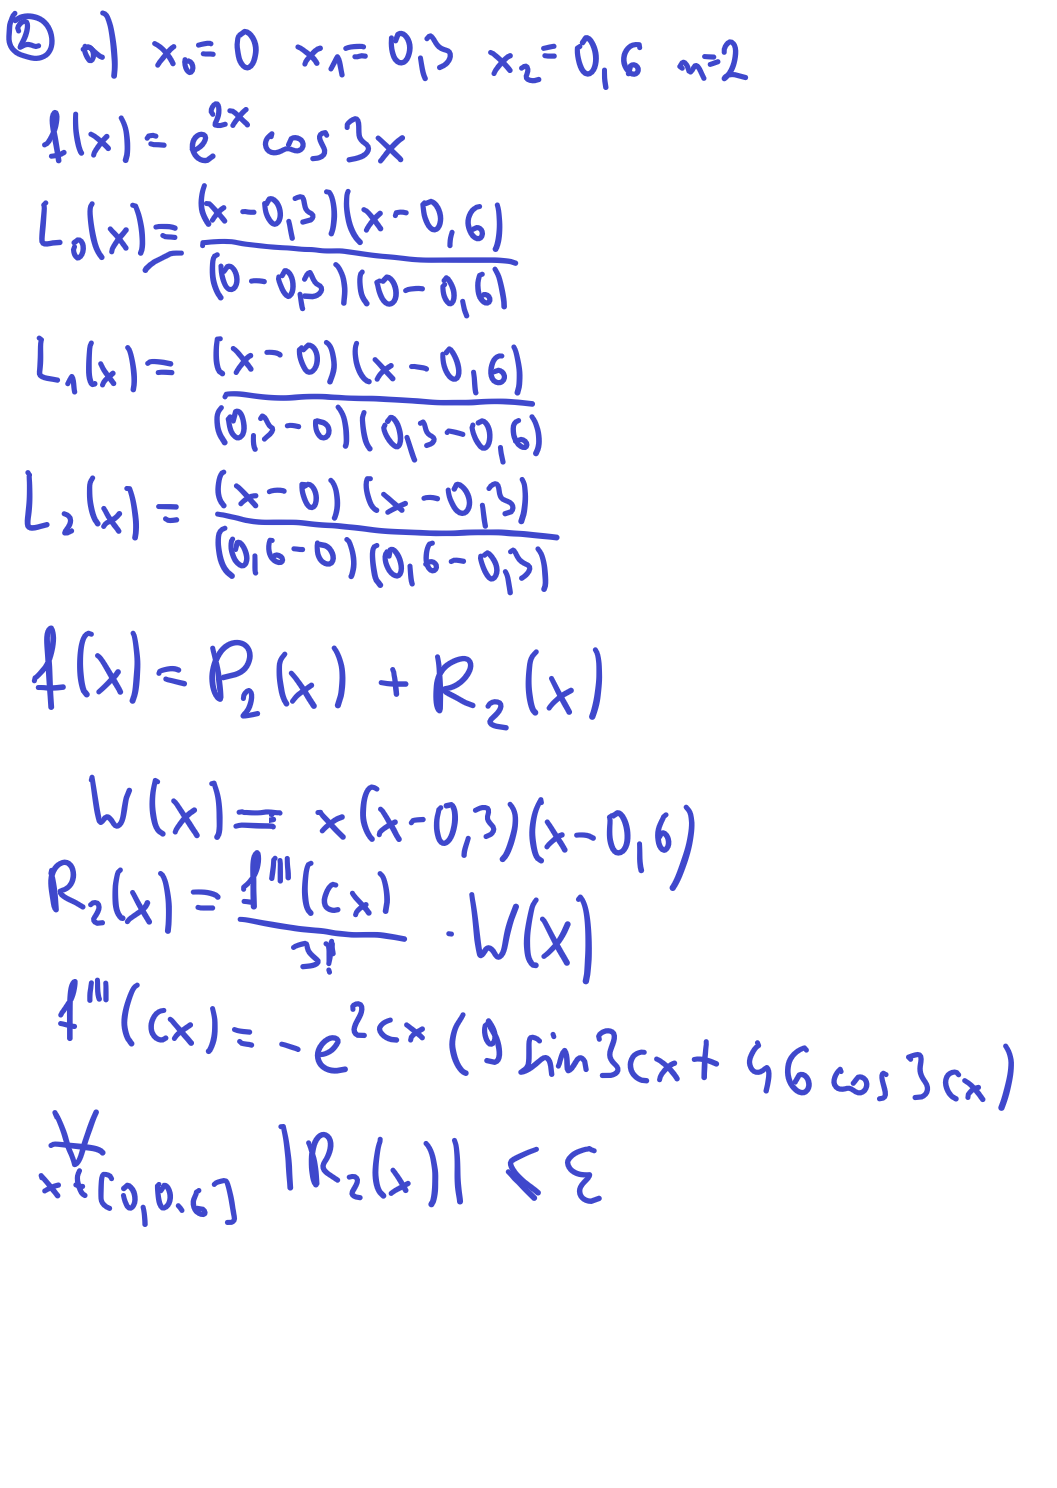 ② a) x₀ = 0 x₁ = 0,3 x₂ = 0,6 n=2
f(x) = e^{2x} cos 3x
L₀(x) = \frac{(x-0,3)(x-0,6)}{(0-0,3)(0-0,6)}
L₁(x) = \frac{(x-0)(x-0,6)}{(0,3-0)(0,3-0,6)}
L₂(x) = \frac{(x-0)(x-0,3)}{(0,6-0)(0,6-0,3)}
f(x) = P₂(x) + R₂(x)
W(x) = x(x-0,3)(x-0,6)
R₂(x) = \frac{f'''(cx)}{3!} · W(x)
f'''(cx) = -e^{2cx} (9 sin 3cx + 46 cos 3cx)
∀ x∈[0,0.6] |R₂(x)| < ε